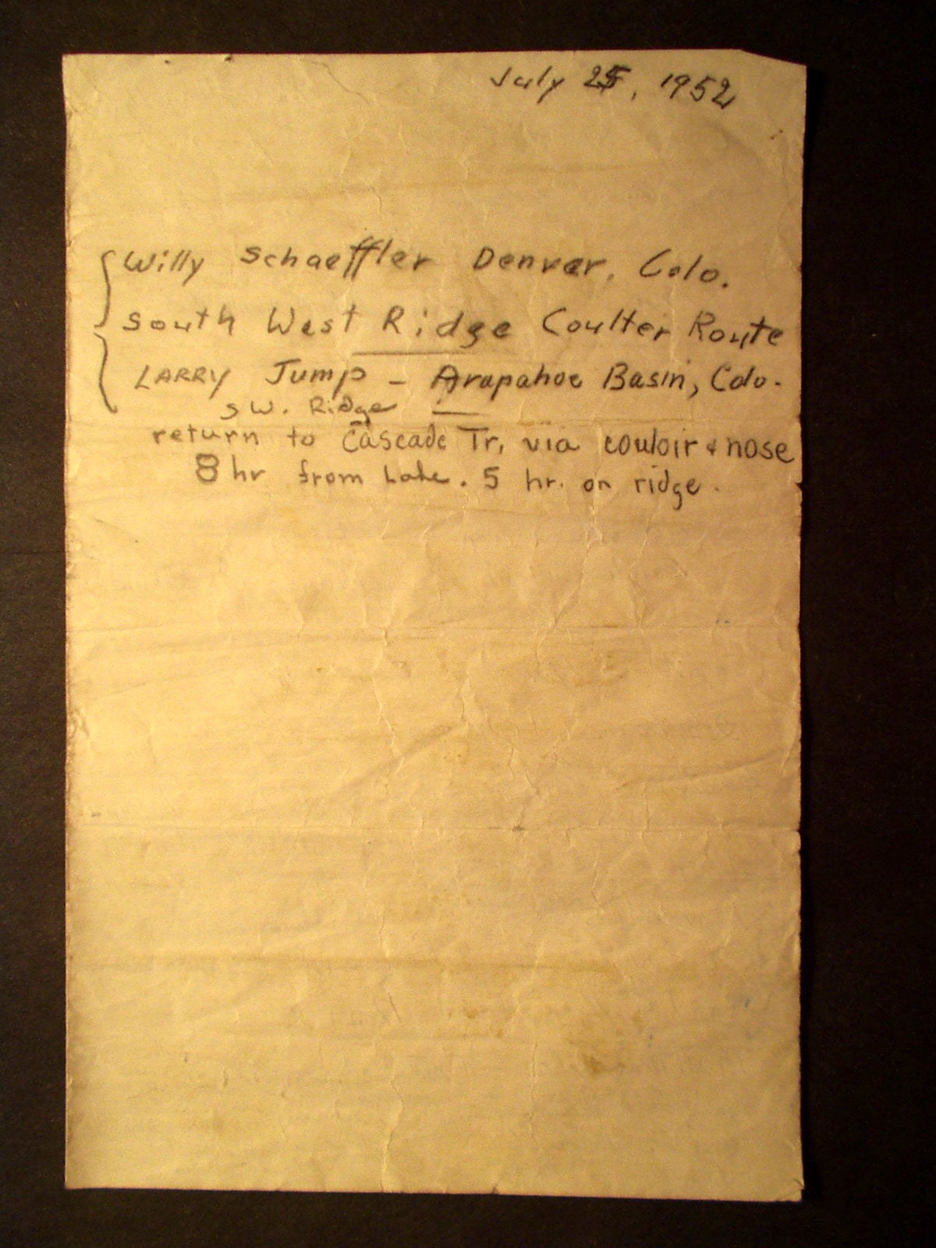 July 25, 1952
Willy Schaeffler Denver, Colo.
South West Ridge Coulter Route
LARRY Jump - Arapahoe Basin, Colo.
SW. Ridge
return to Cascade Tr, via couloir & nose
8 hr from Lake. 5 hr. on ridge.